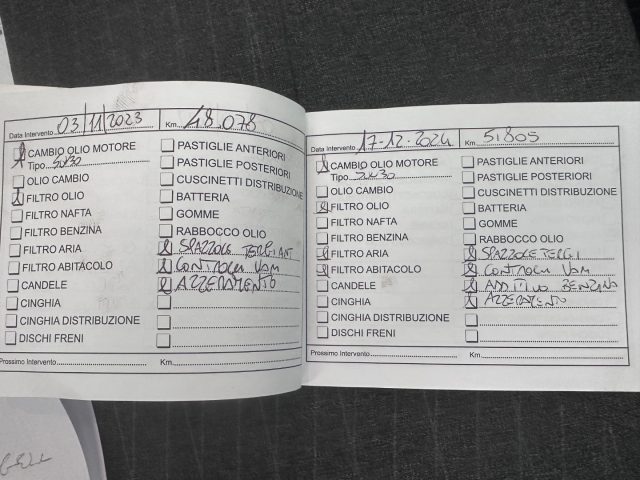 Data Intervento 03/11/2023 Km. 48.078
CAMBIO OLIO MOTORE
Tipo 5W30
OLIO CAMBIO
FILTRO OLIO
FILTRO NAFTA
FILTRO BENZINA
FILTRO ARIA
FILTRO ABITACOLO
CANDELE
CINGHIA
CINGHIA DISTRIBUZIONE
DISCHI FRENI
PASTIGLIE ANTERIORI
PASTIGLIE POSTERIORI
CUSCINETTI DISTRIBUZIONE
BATTERIA
GOMME
RABBOCCO OLIO
SPAZZOLE TERGIANT
CONTROLLI VARI
AZZERAMENTO
Prossimo Intervento Km.
Data Intervento 17-12-2024 Km 51805
CAMBIO OLIO MOTORE
Tipo
OLIO CAMBIO
FILTRO OLIO
FILTRO NAFTA
FILTRO BENZINA
FILTRO ARIA
FILTRO ABITACOLO
CANDELE
CINGHIA
CINGHIA DISTRIBUZIONE
DISCHI FRENI
PASTIGLIE ANTERIORI
PASTIGLIE POSTERIORI
CUSCINETTI DISTRIBUZIONE
BATTERIA
GOMME
RABBOCCO OLIO
SPAZZOLE TERGI
CONTROLLI VARI
ADDITIVO BENZINA
AZZERAMENTO
Prossimo Intervento Km.